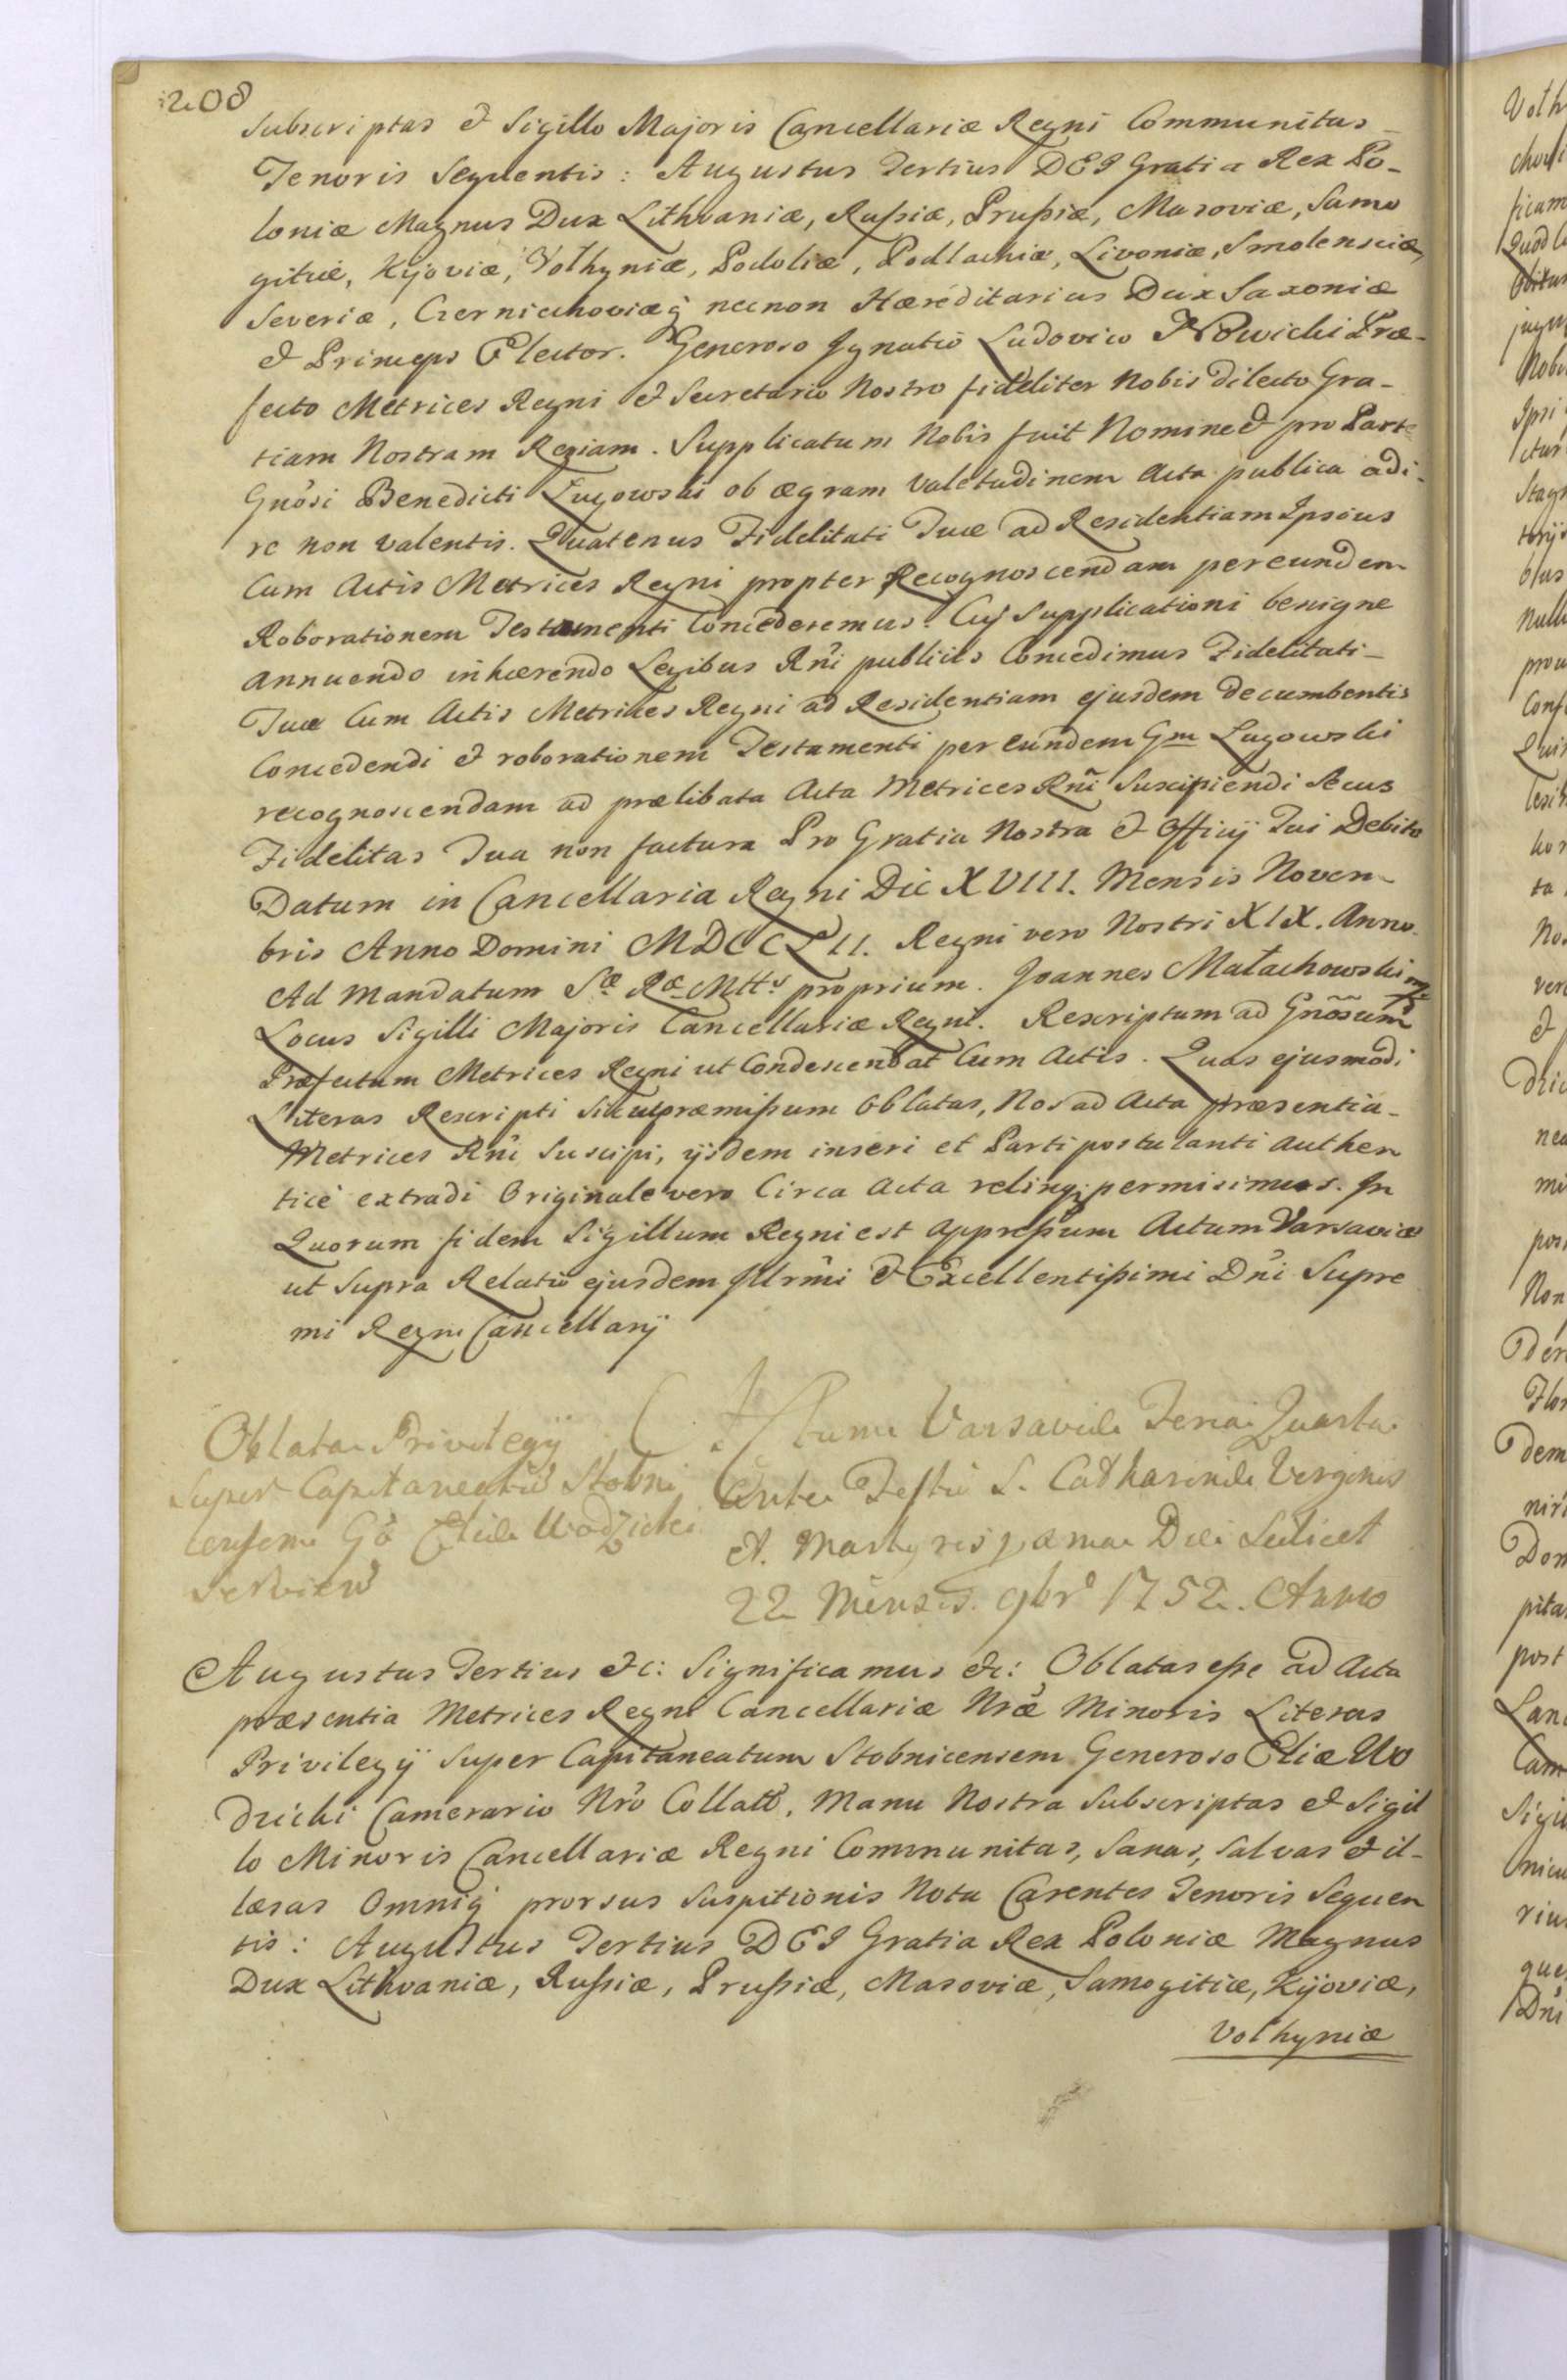 208
Subscriptas & Sigillo Majoris Cancellariæ Regni Communitas
Tenoris Sequentis: Augustus Tertius DEI Gratia Rex Po-
loniæ Magnus Dux Lithvaniæ, Rußiæ, Prußiæ, Masoviæ, Samo
gitiæ, Kijoviæ, Volhyniæ, Podoliæ, Podlachiæ, Livoniæ, Smolensciæ,
Severiæ, Czerniechoviæq necnon Hæreditarius Dux Saxoniæ
& Princeps Elector. Generoso Ignatio Ludovico Nowicki Præ-
fecto Metrices Regni & Secretario Nostro fideliter Nobis dilecto Gra-
tiam Nostram Regiam. Supplicatum Nobis fuit Nomine & pro Parte
Gnosi Benedicti Ługowski ob ægram Valetudinem Acta publica adi-
re non valentis. Quatenus Fidelitati Tuæ ad Residentiam Ipsius
Cum Actis Metrices Regni propter Recognoscendam per eundem
Roborationem Testamenti Concederemus. Cuj Supplicationi benigne
annuendo inhærendo Legibus Rni publicis Concedimus Fidelitati-
Tuæ Cum Actis Metrices Regni ad Residentiam ejusdem decumbentis
Concedendi & roborationem Testamenti per Eundem Gm Ługowski
recognoscendam ad prælibata Acta Metrices Rni Suscipiendi Secus
Fidelitas Tua non factura Pro Gratia Nostra & Officij Tui Debito
Datum in Cancellaria Regni Die XVIII. Mensis Novem-
bris Anno Domini MDCCLII. Regni vero Nostri XIX. Anno.
Ad Mandatum Sæ Ræ Mttis proprium. Joannes Małachowski mp
Locus Sigilli Majoris Cancellariæ Regni. Rescriptum ad Gnosum
Præfectum Metrices Regni ut Condescendat Cum Actis. Quas ejusmodi
Literas Rescripti Sicut præmißum Oblatas, Nos ad Acta præsentia-
Metrices Rni Suscipi, ijsdem inseri et Parti postulanti Authen
ticè extradi Originale vero Circa Acta relinqi permisimus. In
Quorum fidem Sigillum Regni est appreßum Actum Varsaviæ
ut Supra Relatio ejusdem Illrmi & Excellentißimi Dni Supre
mi Regni Cancellarij
Oblata Privilegij
Super Capitaneatũ Stobni
censem Go Eliæ Wodzicki
Servien
Actum Varsaviæ Feria Quarta
Ante Festũ S. Catharinæ Virginis
et Martyris pxma Die Scilicet
22 Mensis 9bris 1752. Anno
Augustus Tertius &c: Significamus &c: Oblatas eße ad Acta
præsentia Metrices Regni Cancellariæ Nræ Minoris Literas
Privilegij Super Capitaneatum Stobnicensem Generoso Eliæ Wo
dzicki Camerario Nro Collatt, Manu Nostra Subscriptas & Sigil
lo Minoris Cancellariæ Regni Communitas, Sanas, Salvas & il-
læsas Omniq prorsus Suspitionis Nota Carentes Tenoris Sequen
tis: Augustus Tertius DEI Gratia Rex Poloniæ Magnus
Dux Lithvaniæ, Rußiæ, Prußiæ, Masoviæ, Samogitiæ, Kijoviæ,
Volhyniæ